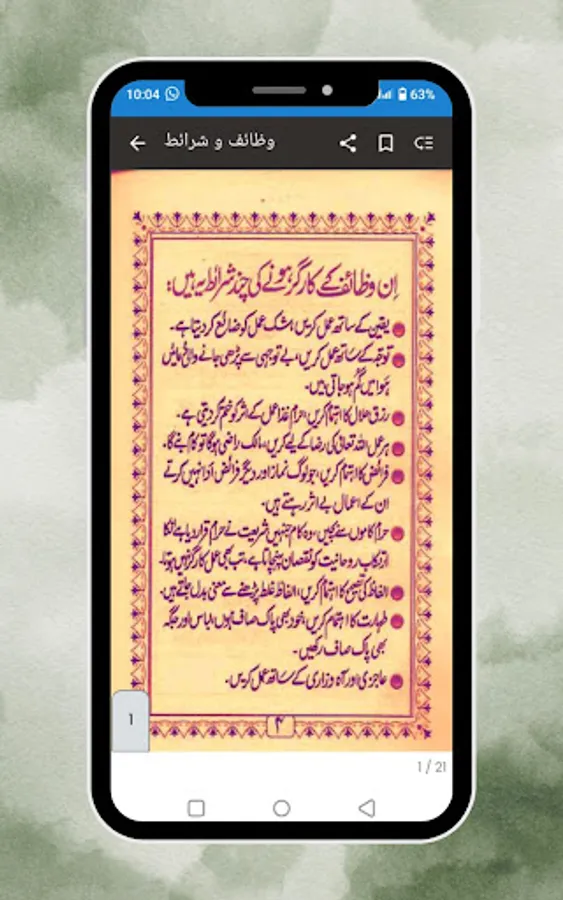 10:04
63%
وظائف و شرائط
اِن وظائف کے کارگر ہونے کی چند شرائط یہ ہیں:
یقین کے ساتھ عمل کریں، شک عمل کو ضائع کر دیتا ہے۔
توجّہ کے ساتھ عمل کریں، بے توجہی سے پڑھی جانے والی دعائیں
ہَوا میں گم ہو جاتی ہیں۔
رزق حلال کا اہتمام کریں، حرام غذا عمل کے اثر کو ختم کر دیتی ہے۔
ہر عمل اللہ تعالیٰ کی رضا کے لیے کریں، مالک راضی ہوگا تو کام بنے گا۔
فرائض کا اہتمام کریں، جو لوگ نماز اور دیگر فرائض ادا نہیں کرتے
ان کے اعمال بے اثر رہتے ہیں۔
حرام کاموں سے بچیں، وہ کام جنہیں شریعت نے حرام قرار دیا ہے انکا
ارتکاب روحانیت کو نقصان پہنچاتا ہے، تب بھی عمل کارگر نہیں ہوتا۔
الفاظ کی تصحیح کا اہتمام کریں، الفاظ غلط پڑھنے سے معنی بدل جاتے ہیں۔
طہارت کا اہتمام کریں، خود بھی پاک صاف ہوں، لباس اور جگہ
بھی پاک صاف رکھیں۔
عاجزی اور آہ و زاری کے ساتھ عمل کریں۔
۴
1
1 / 21